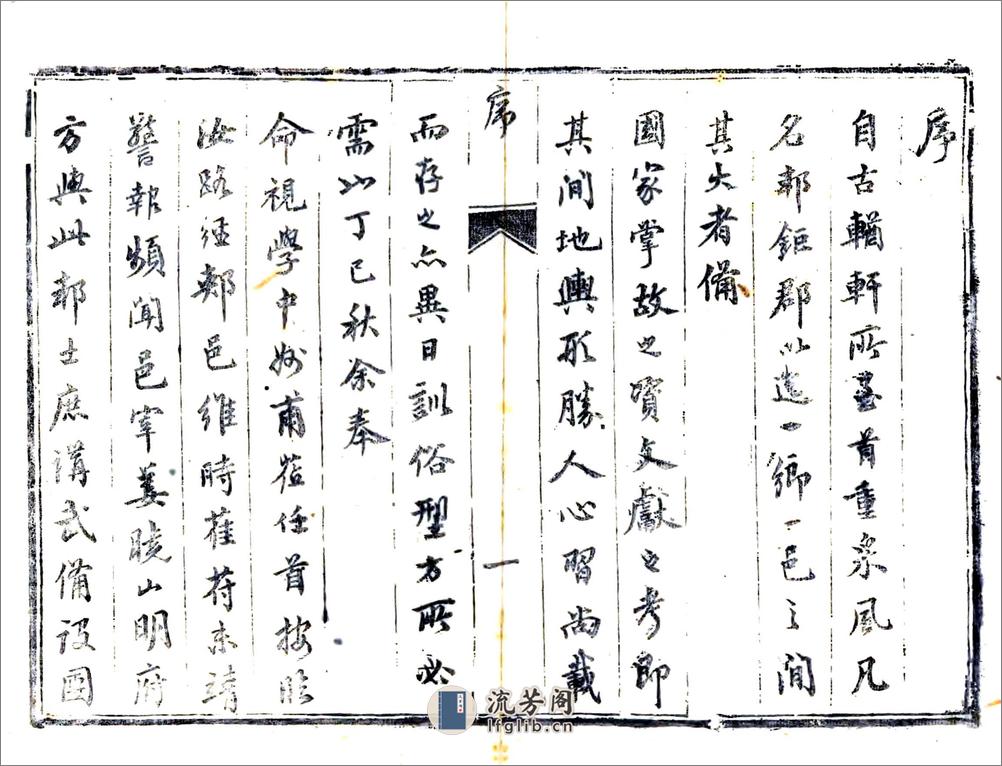 序
自古輶軒所蒞首重采風凡
名邦鉅郡以迄一鄉一邑之間
其大者備
國家掌故之資文獻之考即
其間地輿形勝人心習尚載
序
一
而存之亦異日訓俗型方所必
需也丁巳秋余奉
命視學中州甫蒞任首按臨
汝路經郟邑維時萑苻未靖
警報頻聞邑宰姜曉山明府
方與此邦士庶講武備設團
流芳阁
lfglib.cn